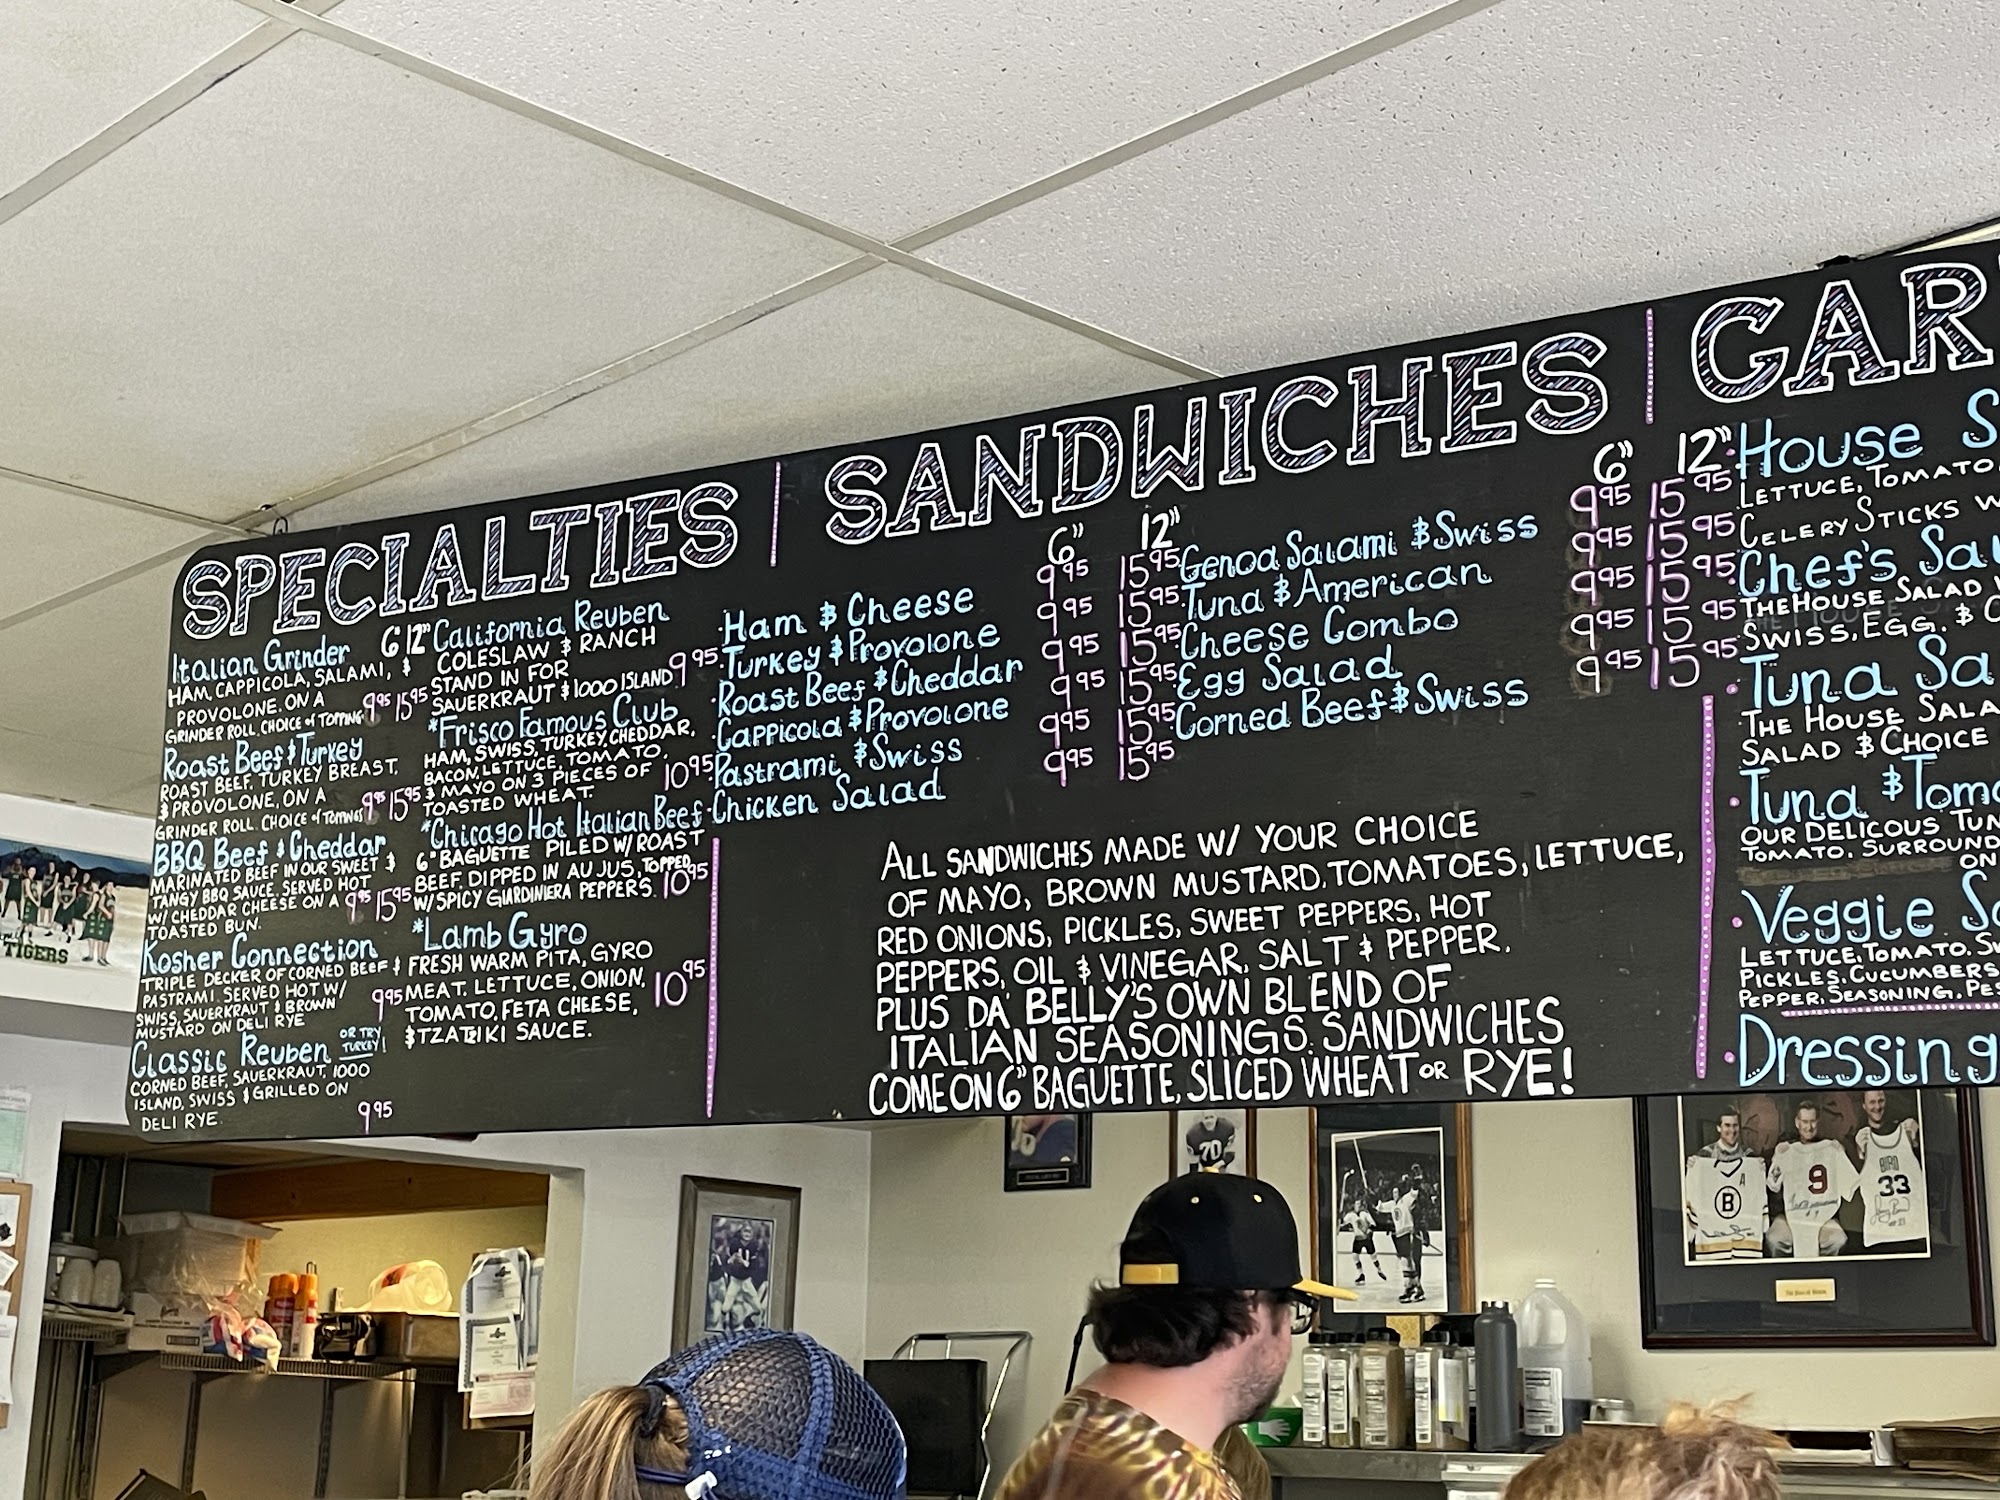 SPECIALTIES
Italian Grinder 6" 12"
HAM, CAPPICOLA, SALAMI, &
PROVOLONE, ON A
GRINDER ROLL. CHOICE of TOPPING 9.95 15.95
Roast Beef & Turkey
ROAST BEEF, TURKEY BREAST,
& PROVOLONE, ON A
GRINDER ROLL. CHOICE of TOPPINGS 9.95 15.95
BBQ Beef & Cheddar
MARINATED BEEF IN OUR SWEET &
TANGY BBQ SAUCE. SERVED HOT
W/ CHEDDAR CHEESE ON A 9.95 15.95
TOASTED BUN.
Kosher Connection
TRIPLE DECKER OF CORNED BEEF &
PASTRAMI. SERVED HOT W/
SWISS, SAUERKRAUT & BROWN 9.95
MUSTARD ON DELI RYE
Classic Reuben OR TRY
TURKEY!
CORNED BEEF, SAUERKRAUT, 1000
ISLAND, SWISS & GRILLED ON
DELI RYE. 9.95
California Reuben
COLESLAW & RANCH
STAND IN FOR
SAUERKRAUT & 1000 ISLAND 9.95
*Frisco Famous Club
HAM, SWISS, TURKEY, CHEDDAR,
BACON, LETTUCE, TOMATO,
& MAYO ON 3 PIECES OF 10.95
TOASTED WHEAT.
*Chicago Hot Italian Beef
6" BAGUETTE PILED W/ ROAST
BEEF, DIPPED IN AU JUS, TOPPED
W/ SPICY GIARDINIERA PEPPERS. 10.95
*Lamb Gyro
FRESH WARM PITA, GYRO
MEAT, LETTUCE, ONION,
TOMATO, FETA CHEESE, 10.95
& TZATZIKI SAUCE.
SANDWICHES
6" 12"
Ham & Cheese 9.95 15.95
Turkey & Provolone 9.95 15.95
Roast Beef & Cheddar 9.95 15.95
Cappicola & Provolone 9.95 15.95
Pastrami & Swiss 9.95 15.95
Chicken Salad 9.95 15.95
6" 12"
Genoa Salami & Swiss 9.95 15.95
Tuna & American 9.95 15.95
Cheese Combo 9.95 15.95
Egg Salad 9.95 15.95
Corned Beef & Swiss 9.95 15.95
ALL SANDWICHES MADE W/ YOUR CHOICE
OF MAYO, BROWN MUSTARD, TOMATOES, LETTUCE,
RED ONIONS, PICKLES, SWEET PEPPERS, HOT
PEPPERS, OIL & VINEGAR, SALT & PEPPER.
PLUS DA' BELLY'S OWN BLEND OF
ITALIAN SEASONINGS. SANDWICHES
COME ON 6" BAGUETTE, SLICED WHEAT OR RYE!
GAR
House S
LETTUCE, TOMATO,
CELERY STICKS W
Chef's Sa
THE HOUSE SALAD
SWISS, EGG, &
Tuna Sa
THE HOUSE SALA
SALAD & CHOICE
Tuna & Tom
OUR DELICOUS TUN
TOMATO. SURROUND
ON
Veggie S
LETTUCE, TOMATO, SW
PICKLES, CUCUMBERS
PEPPER, SEASONING, PE
Dressing
TIGERS
70
B
9
BIRD
33